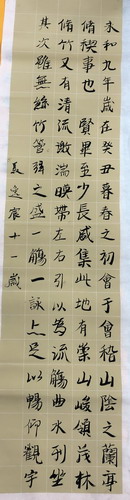 永和九年歲在癸丑暮春之初會于會稽山陰之蘭亭
脩禊事也賢畢至少長咸集此地有崇山峻領茂林
脩竹又有清流激湍暎帶左右引以為流觴曲水列坐
其次雖無絲竹管弦之盛一觴一詠亦足以暢仰觀宇
逸宸十一歲